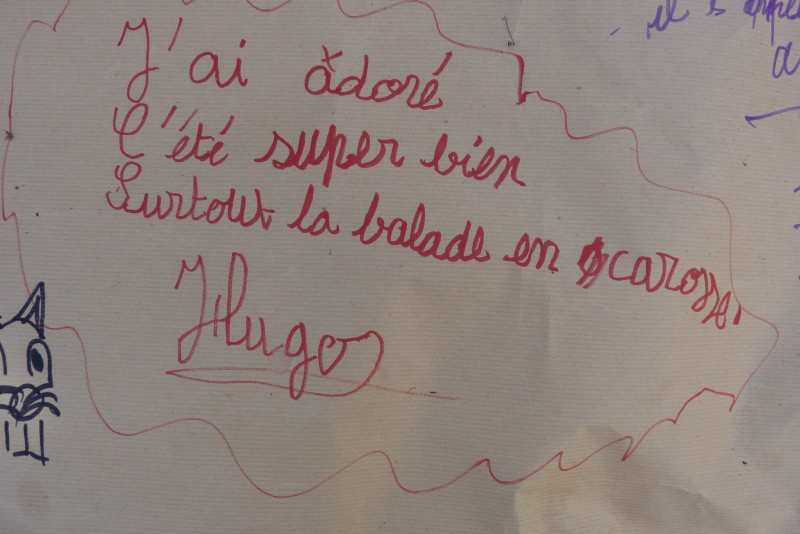 J'ai adoré
C'été super bien
Surtout la balade en carosse.
Hugo
il s'